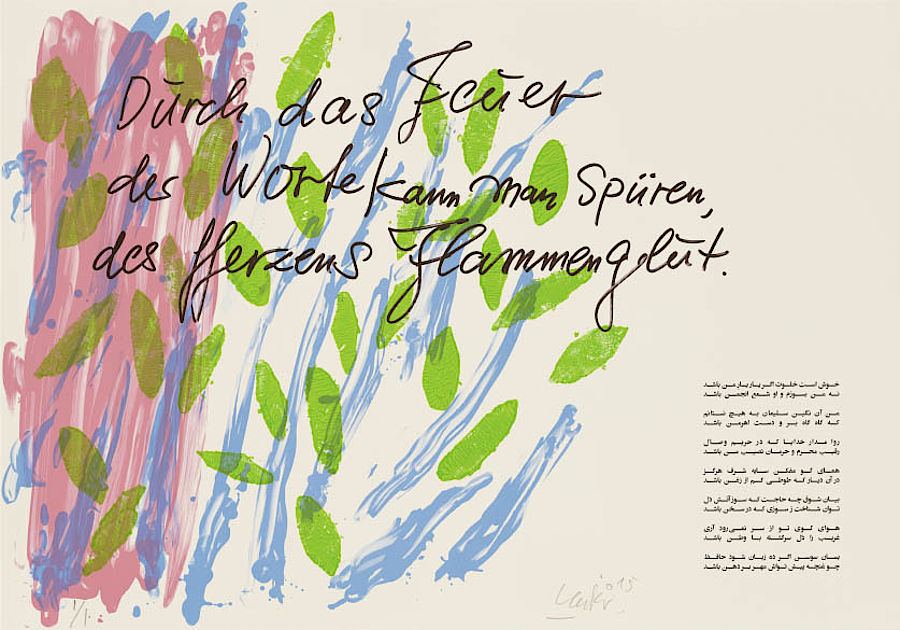 Durch das Feuer
der Worte kann man Spüren,
des Herzens Flammenglut.
خوش است خلوت اگر یار یار من باشد
نه من بسوزم و او شمع انجمن باشد
من آن نگین سلیمان به هیچ نستانم
که گاه گاه بر و دست اهرمن باشد
روا مدار خدایا که در حریم وصال
رقیب محرم و حرمان نصیب من باشد
همای گو مفکن سایه شرف هرگز
در آن دیار که طوطی کم از زغن باشد
بیان شوق چه حاجت که سوز آتش دل
توان شناخت ز سوزی که در سخن باشد
هوای کوی تو از سر نمی‌رود آری
غریب را دل سرگشته با وطن باشد
بسان سوسن اگر ده زبان شود حافظ
چو غنچه پیش تواش مهر بر دهن باشد
1/1
2015